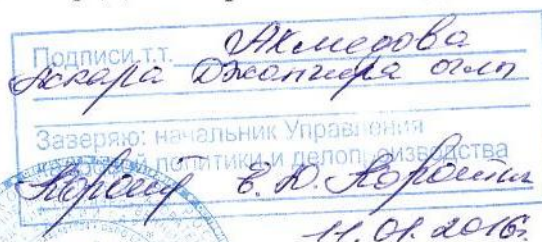 Подписи т.т. Ахмедова
Аскара Джангира оглы
Заверяю: начальник Управления
кадровой политики и делопроизводства
Е. Ю. Корошин
11.01.2016г.